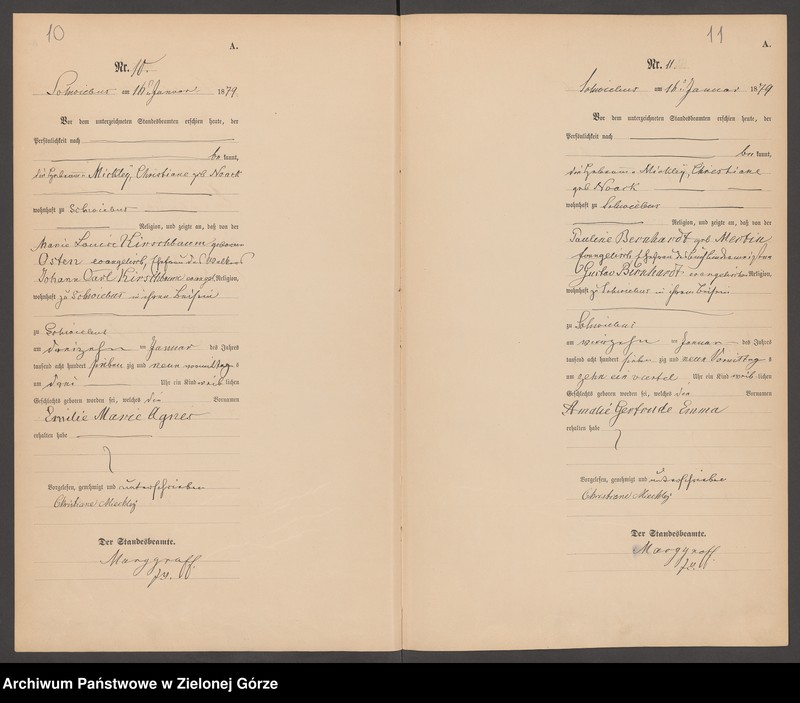 10
A.
Nr. 10.
Schwiebus am 16. Januar 1879
Vor dem unterzeichneten Standesbeamten erschien heute, der
Persönlichkeit nach
bekannt,
die Hebamme Mickley, Christiane geb Noack
wohnhaft zu Schwiebus
Religion, und zeigte an, daß von der
Marie Louise Kirschbaum geborene
Osten evangelisch, Ehefrau des Walkers
Johann Carl Kirschbaum evangel. Religion,
wohnhaft zu Schwiebus in ihrem Beisein
zu Schwiebus
am dreizehn ten Januar des Jahres
tausend acht hundert sieben zig und neun vormittags
um drei Uhr ein Kind weiblichen
Geschlechts geboren worden sei, welches die Vornamen
Emilie Marie Agnes
erhalten habe
Vorgelesen, genehmigt und unterschrieben
Christiane Mickley
Der Standesbeamte.
Marggraff.
11
A.
Nr. 11.
Schwiebus am 16. Januar 1879
Vor dem unterzeichneten Standesbeamten erschien heute, der
Persönlichkeit nach
bekannt,
die Hebamme Mickley, Christiane
geb Noack
wohnhaft zu Schwiebus
Religion, und zeigte an, daß von der
Pauline Bernhardt geb Mertin
Evangelisch, Ehefrau des
Gustav Bernhardt evangelischer Religion,
wohnhaft zu Schwiebus in ihrem Beisein
zu Schwiebus
am vierzehn ten Januar des Jahres
tausend acht hundert sieben zig und neun Vormittags
um zehn ein viertel Uhr ein Kind weiblichen
Geschlechts geboren worden sei, welches die Vornamen
Amalie Gertrude Emma
erhalten habe
Vorgelesen, genehmigt und unterschrieben
Christiane Mickley
Der Standesbeamte.
Marggraff
Archiwum Państwowe w Zielonej Górze